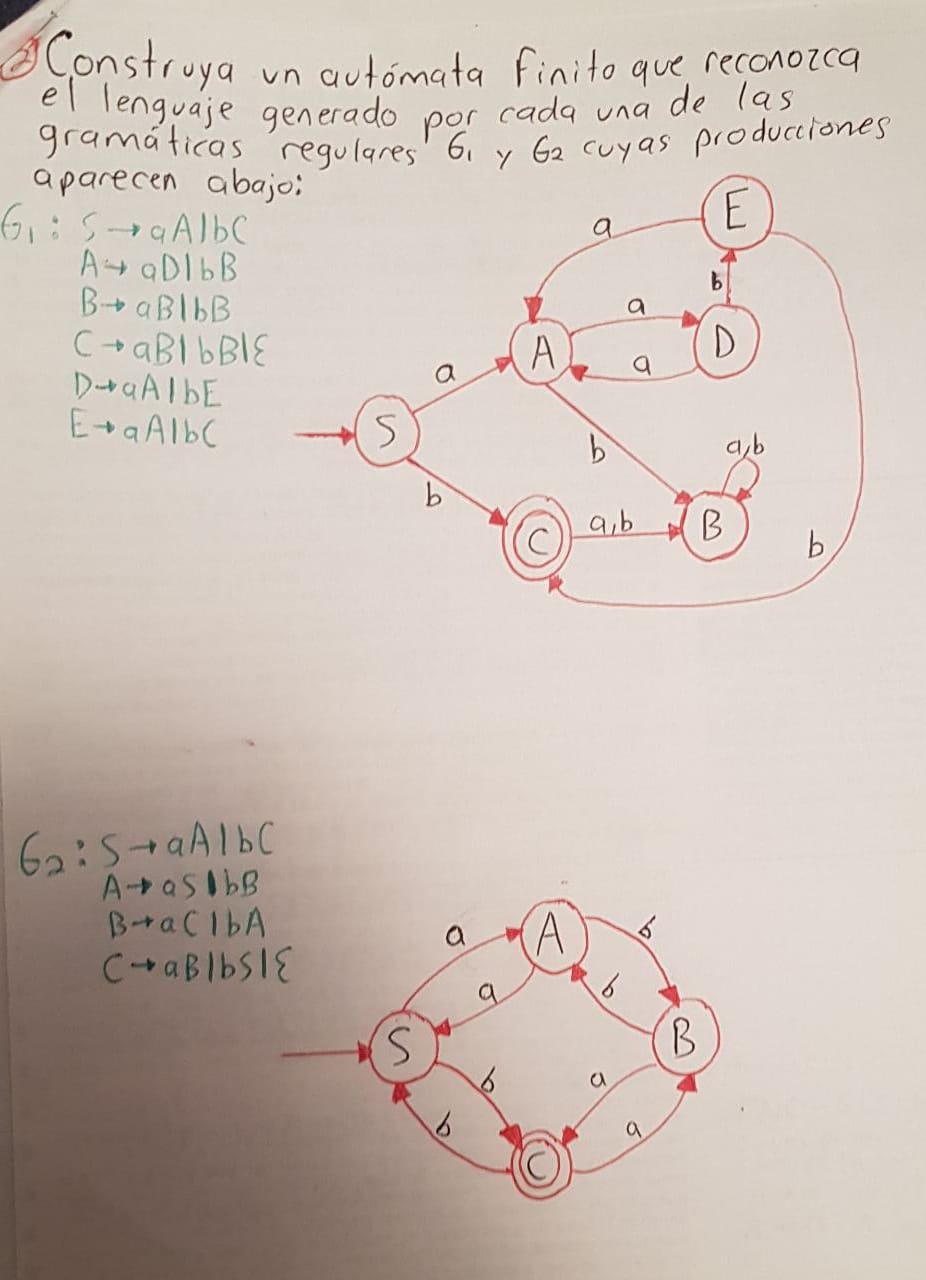 2) Construya un autómata finito que reconozca
el lenguaje generado por cada una de las
gramáticas regulares G₁ y G₂ cuyas producciones
aparecen abajo:
G₁: S→aA|bC
A→aD|bB
B→aB|bB
C→aB|bB|ε
D→aA|bE
E→aA|bC
E
a
b
a
A
D
a
a
S
b
a,b
b
C
a,b
B
b
G₂: S→aA|bC
A→aS|bB
B→aC|bA
C→aB|bS|ε
A
a
b
a
b
S
B
b
a
b
a
C